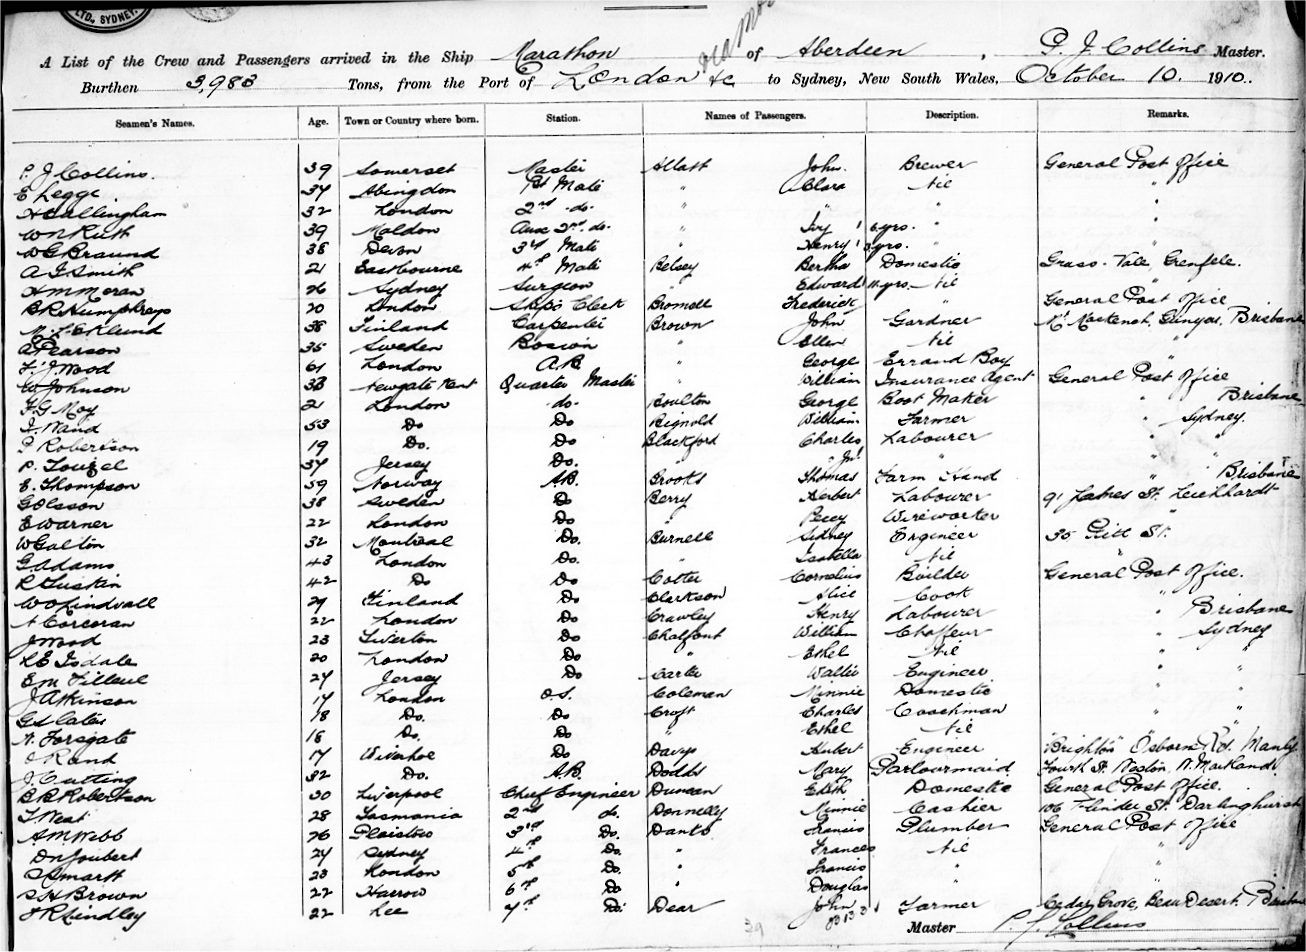 LTD. SYDNEY.
A List of the Crew and Passengers arrived in the Ship Marathon of Aberdeen, P. J. Collins Master.
Burthen 3,983 Tons, from the Port of London &c to Sydney, New South Wales, October 10. 1910.
Seamen's Names. Age. Town or Country where born. Station. Names of Passengers. Description. Remarks.
P J Collins. 39 Somerset Master Allatt John. Brewer General Post Office
E Legge 34 Abingdon 1st Mate " Clara Nil "
H Callingham 32 London 2nd do. " " " "
W N Rush 39 Maldon Aux 2nd. do. " Ivy 6 yrs. " "
W G Braund 38 Devon 3rd Mate " Henry 3 yrs. "
A G Smith 21 Eastbourne 4th Mate Belsey Bertha Domestic Grass-Vale, Grenfele.
H M Moran 26 Sydney Surgeon " Edward 11 yrs. Nil "
B R Humphreys 20 London Ship's Clerk Bromell Frederick " General Post Office
M. F. Eklund 38 Finland Carpenter Brown John Gardner Brisbane
A Pearson 35 Sweden Bosun " Ellen Nil "
F. J. Wood 61 London A.B. " George Errand Boy "
W Johnson 33 Newgate Kent Quarter Master " William Insurance Agent General Post Office
F. G. May 21 London do. Boulton George Boot Maker " Brisbane
J. Nand 53 Do Do Bignold William Farmer " Sydney.
P Robertson 19 Do. Do Blackford Charles Labourer " "
P. Touzel 34 Jersey Do. " " Jnr. " " "
E. Thompson 39 Norway A.B. Brooks Thomas Farm Hand " Brisbane
G Olsson 38 Sweden Do Berry Herbert Labourer 91 James St. Leichhardt
E Warner 22 London Do " Percy Wireworker "
W Galton 32 Montreal Do. Burnell Sidney Engineer 35 Pitt St.
G. Adams 43 London Do. " Isabella Nil "
R Luskin 42 Do Do Cotter Cornelius Builder General Post Office.
W O Lindvall 29 Finland Do Clarkson Alice Cook " Brisbane
N Corcoran 22 London Do Crawley Henry Labourer " Sydney
J Wood 23 Tiverton Do Chalfont William Chaffeur "
R E Tisdale 20 London Do " Ethel Nil " "
E M Filleul 24 Jersey Do Carter Walter Engineer "
J Atkinson 17 London O.S. Coleman Minnie Domestic " "
G S Cates 18 Do. Do Croft Charles Coachman " "
N. Forsgate 18 Do. Do " Ethel Nil "
J Rand 17 Wivenhoe Do Davys Hubert Engineer "Brighton" Osborn Rd. Manly
J. Cutting 32 Do. A.B. Dodds Mary Parlourmaid Fourth St. Weston, N. Maitland.
B B Robertson 30 Liverpool Chief Engineer Duncan Edith Domestic General Post Office.
T West 28 Tasmania 2nd do. Donnelly Minnie Cashier 106 Flinder St. Darlinghurst
A M Webb 26 Plaistow 3rd Do. Danks Francis Plumber General Post Office
D N Joubert 24 Sydney 4th Do. " Frances Nil "
S Smartt 23 London 5th Do. " Francis " "
S H Brown 22 Harrow 6th Do " Douglas " "
F R Lindley 22 Lee 7th Do. Dear John Farmer Cedar Grove, Beau Desert, Brisbane
39
Master P. J. Collins